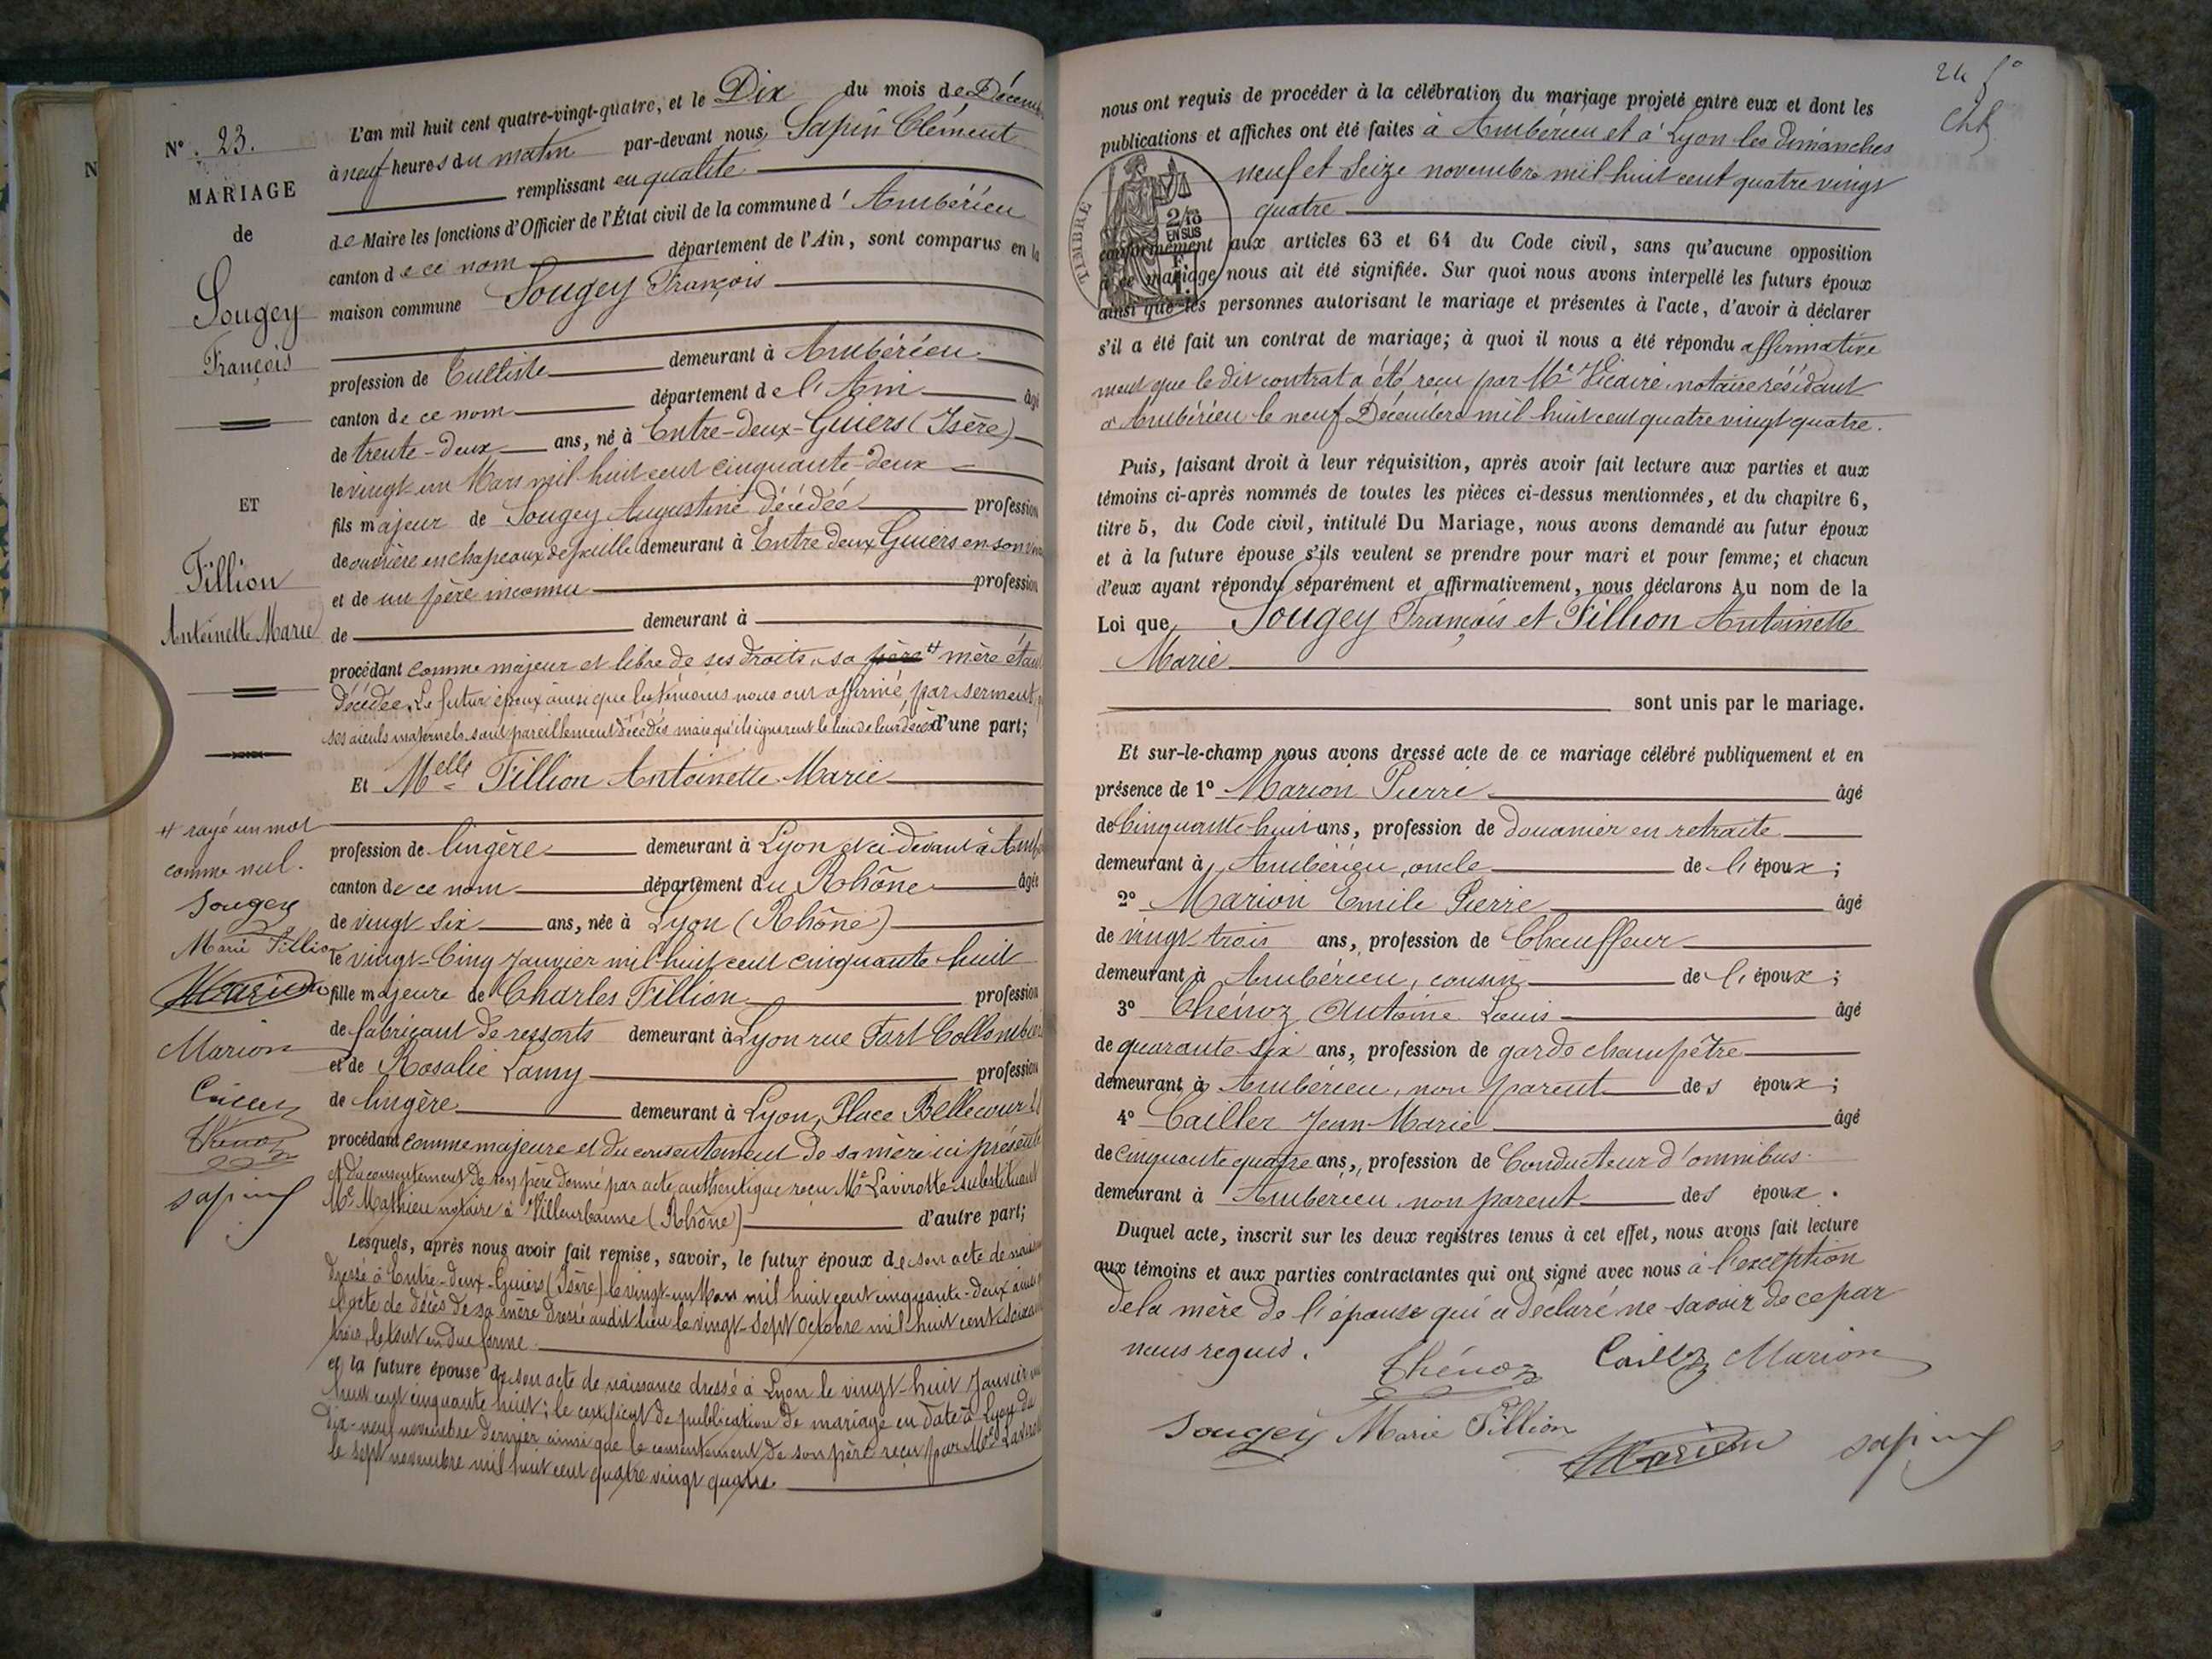 N° 23.
MARIAGE
de
Sougey
François
ET
Fillion
Antoinette Marie
+ rayé un mot
comme nul.
Sougey
Marie Fillion
Marion
Marion
Thénoz
Sapin
L'an mil huit cent quatre-vingt-quatre, et le Dix du mois de Décem
à neuf heures du matin par-devant nous, Sapin Clément
remplissant en qualité
de Maire les fonctions d'Officier de l'État civil de la commune d'Ambérieu
canton de ce nom département de l'Ain, sont comparus en la
maison commune Sougey François
profession de demeurant à Ambérieu
canton de ce nom département de l'Ain âgé
de trente-deux ans, né à Entre-deux-Guiers (Isère)
le vingt-un Mars mil huit cent cinquante-deux
fils majeur de Sougey Augustine décédée profession
de ouvrière en chapeaux de paille demeurant à Entre deux Guiers en son viv
et de un père inconnu profession
de demeurant à
procédant comme majeur et libre de ses droits, sa père + mère étant
décédée. Le futur époux ainsi que les témoins nous ont affirmé par serment
ses aïeuls maternels sont pareillement décédés mais qu'ils ignorent le lieu de leur décès d'une part;
Et Melle Fillion Antoinette Marie
profession de lingère demeurant à Lyon et ci devant à Amb
canton de ce nom département du Rhône âgée
de vingt six ans, née à Lyon (Rhône)
le vingt-Cinq Janvier mil huit cent cinquante huit
fille majeure de Charles Fillion profession
de fabricant de ressorts demeurant à Lyon rue Fort Collombier
et de Rosalie Lamy profession
de lingère demeurant à Lyon, Place Bellecour
procédant comme majeure et du consentement de sa mère ici présente
et du consentement de son père donné par acte authentique reçu Me Lavirotte substituant
Me Mathieu notaire à Villeurbanne (Rhône) d'autre part;
Lesquels, après nous avoir fait remise, savoir, le futur époux de son acte de nais
dressé à Entre-deux-Guiers (Isère) le vingt-un Mars mil huit cent cinquante-deux ainsi
l'acte de décès de sa mère dressé audit lieu le vingt-sept octobre mil huit cent soixan
trois, le tout en due forme.
et la future épouse de son acte de naissance dressé à Lyon le vingt-huit Janvier mil
huit cent cinquante huit; le certificat de publication de mariage en date à Lyon du
dix-neuf novembre dernier ainsi que le consentement de son père reçu par Me Laviro
le sept novembre mil huit cent quatre vingt quatre.
24
nous ont requis de procéder à la célébration du mariage projeté entre eux et dont les
publications et affiches ont été faites à Ambérieu et à Lyon les dimanches
neuf et seize novembre mil huit cent quatre vingt
quatre
TIMBRE
2/10
EN SUS
conformément aux articles 63 et 64 du Code civil, sans qu'aucune opposition
à ce mariage nous ait été signifiée. Sur quoi nous avons interpellé les futurs époux
ainsi que les personnes autorisant le mariage et présentes à l'acte, d'avoir à déclarer
s'il a été fait un contrat de mariage; à quoi il nous a été répondu affirmative
ment que le dit contrat a été reçu par Me Vicaire notaire résidant
à Ambérieu le neuf Décembre mil huit cent quatre vingt quatre.
Puis, faisant droit à leur réquisition, après avoir fait lecture aux parties et aux
témoins ci-après nommés de toutes les pièces ci-dessus mentionnées, et du chapitre 6,
titre 5, du Code civil, intitulé Du Mariage, nous avons demandé au futur époux
et à la future épouse s'ils veulent se prendre pour mari et pour femme; et chacun
d'eux ayant répondu séparément et affirmativement, nous déclarons Au nom de la
Loi que Sougey François et Fillion Antoinette
Marie
sont unis par le mariage.
Et sur-le-champ nous avons dressé acte de ce mariage célébré publiquement et en
présence de 1° Marion Pierre âgé
de Cinquante huit ans, profession de douanier en retraite
demeurant à Ambérieu, oncle de l'époux;
2° Marion Emile Pierre âgé
de vingt trois ans, profession de Chauffeur
demeurant à Ambérieu, cousin de l'époux;
3° Thénoz Antoine Louis âgé
de quarante six ans, profession de garde champêtre
demeurant à Ambérieu, non parent des époux;
4° Cailler Jean-Marie âgé
de Cinquante quatre ans, profession de Conducteur d'omnibus
demeurant à Ambérieu non parent des époux.
Duquel acte, inscrit sur les deux registres tenus à cet effet, nous avons fait lecture
aux témoins et aux parties contractantes qui ont signé avec nous à l'exception
de la mère de l'épouse qui a déclaré ne savoir de ce par
nous requis.
Thénoz Marion
Sougey Marie Fillion
Marion Sapin